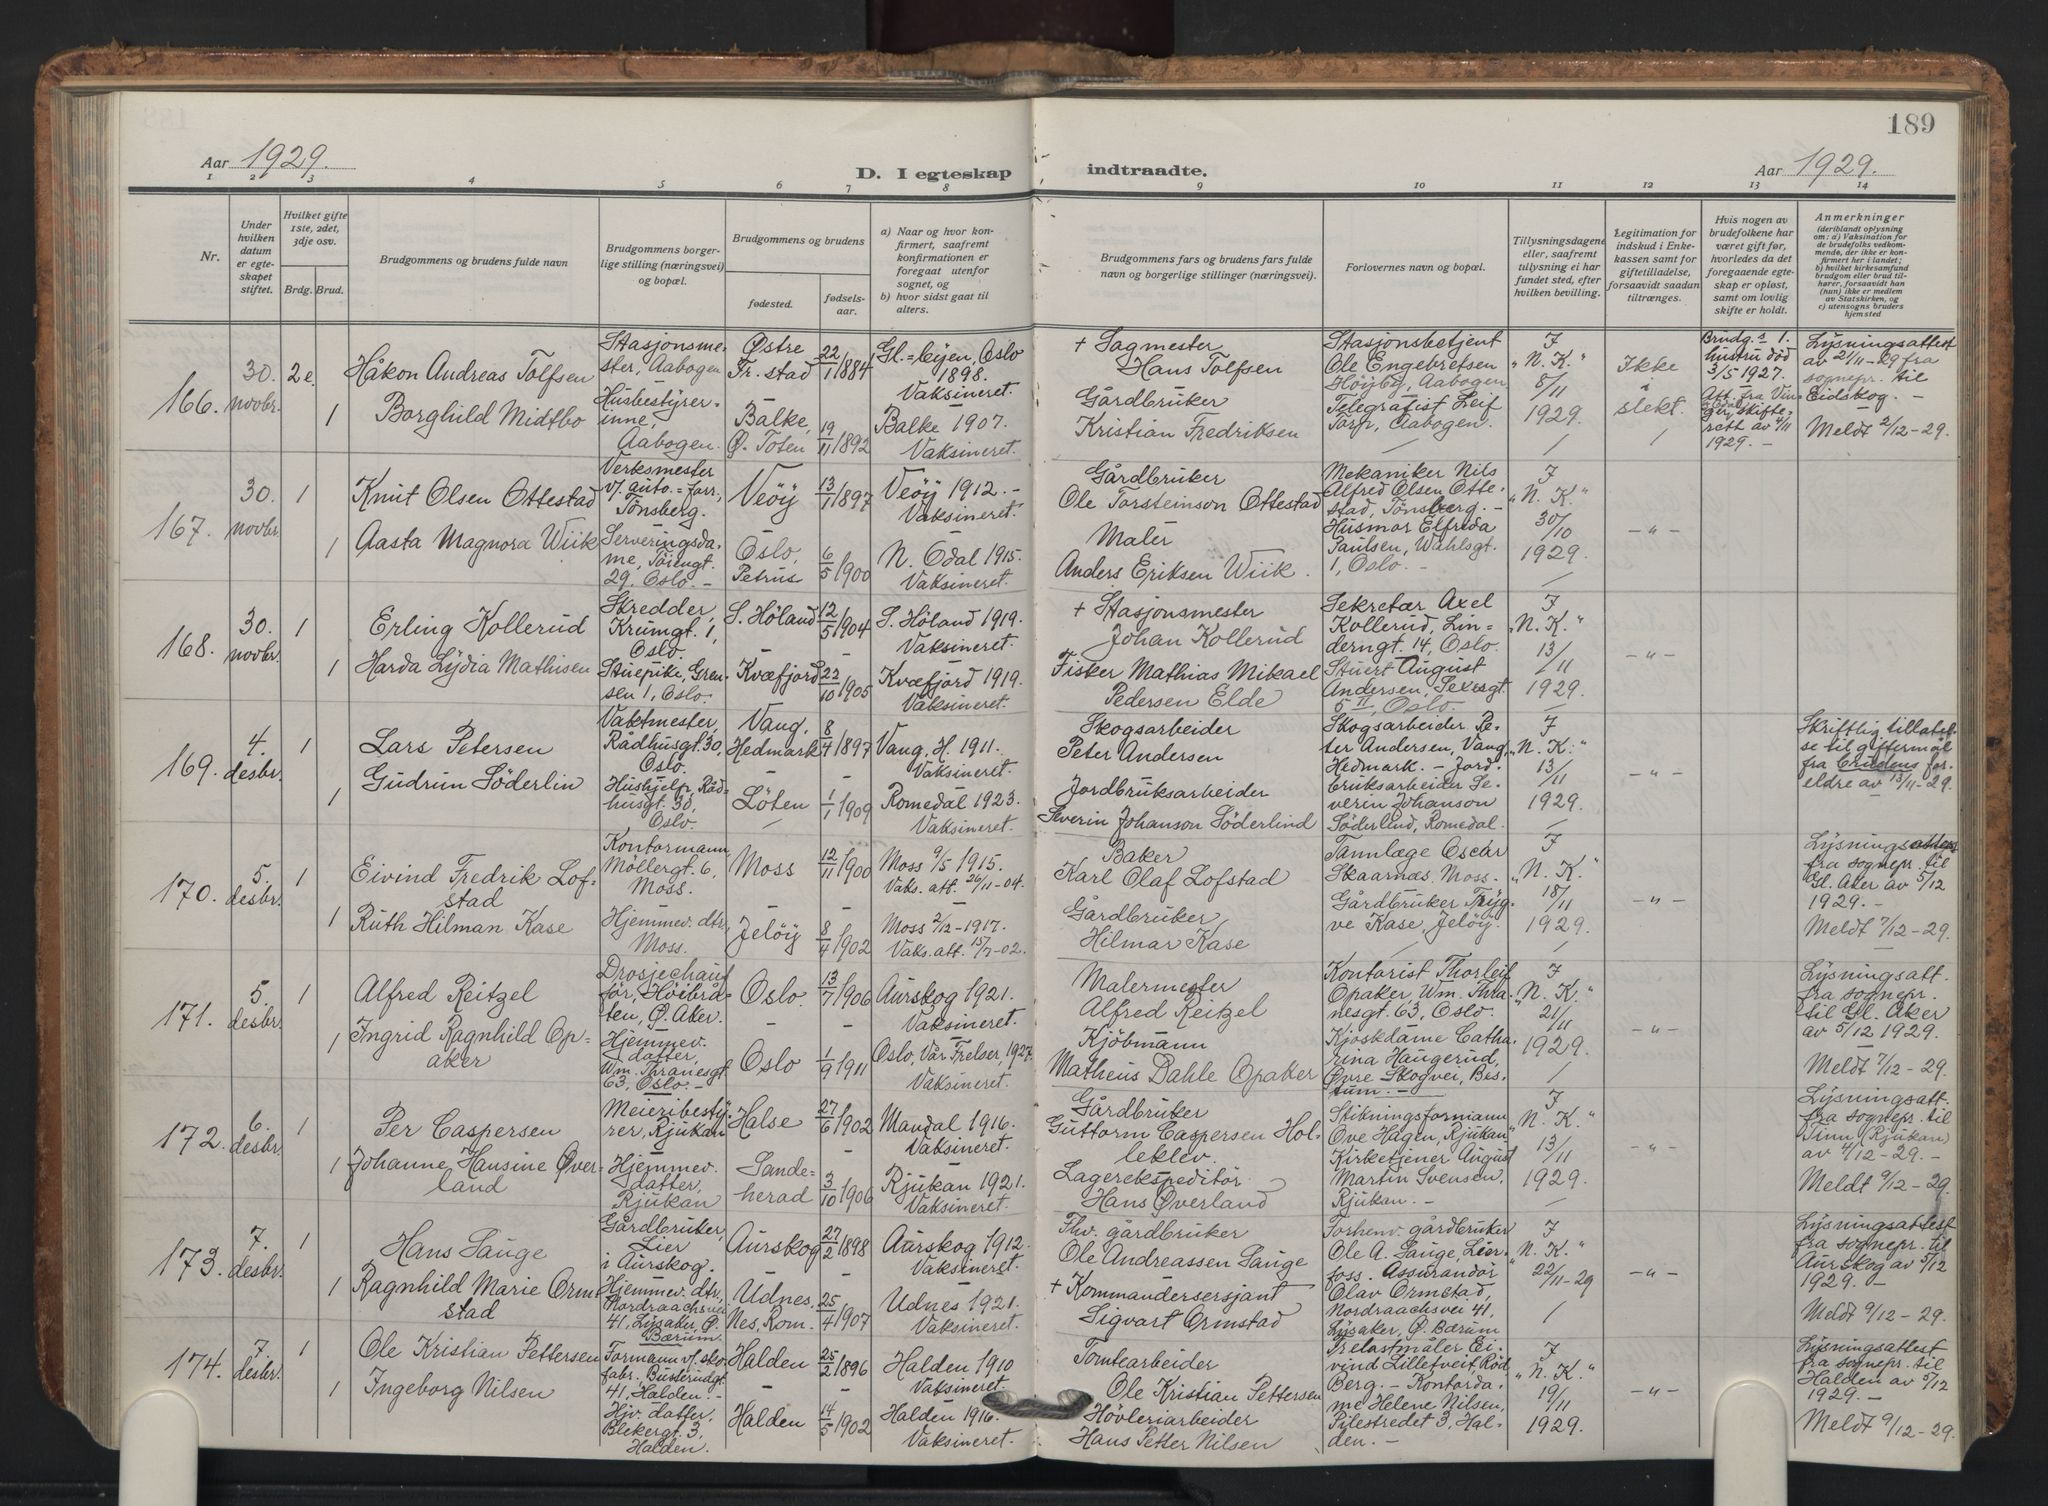 189
Aar 1929.
D. I egteskap
indtraadte.
Aar 1929.
1 2 3 4 5 6 7 8 9 10 11 12 13 14
Nr.
Under hvilken datum er egte-skapet stiftet.
Hvilket gifte 1ste, 2det, 3dje osv.
Brdg. Brud.
Brudgommens og brudens fulde navn
Brudgommens borger-lige stilling (næringsvei) og bopæl.
Brudgommens og brudens
fødested.
fødsels-aar.
a) Naar og hvor kon-firmert, saafremt konfirmationen er foregaat utenfor sognet, og
b) hvor sidst gaat til alters.
Brudgommens fars og brudens fars fulde navn og borgerlige stillinger (næringsvei).
Forlovernes navn og bopæl.
Tillysningsdagene eller, saafremt tillysning ei har fundet sted, efter hvilken bevilling.
Legitimation for indskud i Enke-kassen samt for giftetilladelse, forsaavidt saadan tiltrænges.
Hvis nogen av brudefolkene har været gift før, hvorledes da det foregaaende egte-skap er opløst, samt om lovlig skifte er holdt.
Anmerkninger (deriblandt oplysning om: a) Vaksination for de brudefolks vedkom-mende, der ikke er kon-firmert her i landet; b) hvilket kirkesamfund brudgom eller brud til-hører, forsaavidt han (hun) ikke er medlem av Statskirken, og c) utensogns bruders hjemsted
166.
30. novbr.
2 e.
Håkon Andreas Tolfsen
Stasjonsme-
ster, Aabogen
Østre
Fr.stad
22/1 1884
Oslo
1898.
Vaksineret.
+ Sagmester
Hans Tolfsen
Stasjonsbetjent
Ole Engebretsen
Höyby, Aabogen
F
"N. K."
8/11
1929.
Ikke
i
slekt.
Brudg.s 1.
hustru död
3/5 1927.
Att. fra Vin-
skifte-
rett av 4/11
1929. -
Lysningsattest
av 21/11-29 fra
sognepr. til
Eidskog. -
Meldt 2/12-29.
1
Borghild Midtbo
Husbestyrer-
inne,
Aabogen.
Balke,
Ø. Toten
19/11 1892
Balke 1907.
Vaksineret.
Gårdbruker
Kristian Fredriksen
Telegrafist Leif
Torp, Aabogen.
167.
30. novbr.
1
Knut Olsen Ottestad
Verksmester
v/ auto.=forr.,
Tönsberg.
Veöy
13/7 1897
Veöy 1912. -
Vaksineret.
Gårdbruker
Ole Torsteinson Ottestad
Mekaniker Nils
Alfred Olsen Otte-
stad, Tönsberg. -
F
"N. K."
30/10
1929.
- " -
1
Aasta Magnora Wiik
Serveringsda-
me, Töiengt.
29, Oslo. -
Oslo,
Petrus
6/5 1900
N. Odal 1915.
Vaksineret.
Maler
Anders Eriksen Wiik.
Husmor Elfrida
Paulsen, Wahlsgt.
1, Oslo. -
168.
30. novbr.
1
Erling Kollerud
Skredder,
Krumgt. 1,
Oslo.
S. Höland
12/5 1904
S. Höland 1919.
Vaksineret.
+ Stasjonsmester
Johan Kollerud
Sekretær Axel
Kollerud, Lin-
derngt. 14, Oslo.
F
"N. K."
13/11
1929.
- " -
1
Harda Lydia Mathisen
Stuepike, Gren-
sen 1, Oslo.
Kvæfjord
22/10 1905
Kvæfjord 1919.
Vaksineret.
Fisker Mathias Mikael
Pedersen Elde
Stuert August
Andersen, Sexesgt.
5 II, Oslo.
169.
4. desbr.
1
Lars Petersen
Vaktmester,
Rådhusgt. 30,
Oslo.
Vang,
Hedmark
8/4 1897
Vang, H. 1911.
Vaksineret.
Skogsarbeider
Peter Andersen
Skogsarbeider Pe-
ter Andersen, Vang,
Hedmark. - Jord-
F
"N. K."
13/11
1929.
- " -
Skriftlig tillatel-
se til giftermål
fra brudens for-
eldre av 13/11-29.
1
Gudrun Söderlin
Hushjelp, Råd-
husgt. 30,
Oslo.
Löten
1/1 1909
Romedal 1923.
Vaksineret.
Jordbruksarbeider
Severin Johanson Söderlind
bruksarbeider Se-
verin Johanson
Söderlind, Romedal.
170.
5. desbr.
1
Eivind Fredrik Lof-
stad
Kontormann
Möllergt. 6,
Moss.
Moss
12/11 1900
Moss 9/5 1915.
Vaks. att. 26/11-04.
Baker
Karl Olaf Lofstad
Tannlæge Oscar
Skaarnæs, Moss.
F
"N. K."
18/11
1929.
- " -
Lysningsattest
fra sognepr. til
Gl. Aker av 5/12
1929. -
Meldt 7/12-29.
1
Ruth Hilman Kase
Hjemmev. dtr,
Moss.
Jelöy
8/4 1902
Moss 2/12-1917.
Vaks. att. 15/7-02.
Gårdbruker
Hilmar Kase
Gårdbruker Tryg-
ve Kase, Jelöy.
171.
5. desbr.
1
Alfred Reitzel
Drosjechauf-
för, Höibrå-
ten, Ø. Aker.
Oslo.
13/7 1906
Aurskog 1921.
Vaksineret.
Malermester
Alfred Reitzel
Kontorist Thorleif
Opaker, Wm. Thra-
nesgt. 63, Oslo.
F
"N. K."
21/11
1929.
- " -
Lysningsatt.
fra sognepr.
til Gl. Aker
av 5/12 1929.
Meldt 7/12-29.
1
Ingrid Ragnhild Op-
aker
Hjemmev.
datter,
Wm. Thranesgt.
63, Oslo. -
Oslo
1/9 1911
Oslo, Vår Frelser, 1927.
Vaksineret.
Kjöbmann
Matheus Dahle Opaker
Kjoskdame Catha-
rina Haugerud,
Øvre Skogvei, Bes-
tum. -
172.
6. desbr.
1
Per Caspersen
Meieribesty-
rer, Rjukan
Halse
27/6 1902
Mandal 1916.
Vaksineret.
Gårdbruker
Guttorm Caspersen Hol-
leklev.
Stikningsformann
Ove Hagen, Rjukan
F
"N. K."
13/11
1929.
- " -
Lysningsatt.
fra sognepr. til
Tinn (Rjukan)
av 4/12-29. -
Meldt 9/12-29.
1
Johanne Hansine Över-
land
Hjemmev.
datter,
Rjukan
Sande-
herad
3/10 1906
Rjukan 1921.
Vaksineret.
Lagerekspeditör
Hans Överland
Kirketjener August
Martin Svensen,
Rjukan. -
173.
7. desbr.
1
Hans Sauge
Gårdbruker,
Lier
i Aurskog.
Aurskog
27/2 1898
Aurskog 1912.
Vaksineret.
Fhv. gårdbruker
Ole Andreassen Sauge
Forhenv. gårdbruker
Ole A. Sauge, Lier-
foss. Assurandör
F
"N. K."
22/11-29
- " -
Lysningsattest
fra sognepr. til
Aurskog av 5/12
1929. -
Meldt 9/12-29.
1
Ragnhild Marie Orm-
stad
Hjemmev. dtr,
Nordraachsvei
41, Lysaker, Ø.
Bærum.
Udnes,
Nes, Rom.
25/4 1907
Udnes 1921.
Vaksineret.
+ Kommandersersjant
Sigvart Ormstad
Olav Ormstad,
Nordraachsvei 41,
Lysaker, Ø. Bærum
174.
7. desbr.
1
Ole Kristian Pettersen
Formann v/ sko-
fabr., Busterudgt.
41, Halden. -
Halden
25/2 1896
Halden 1910
Vaksineret.
Tomtearbeider
Ole Kristian Pettersen
Trelastmåler Ei-
vind Lilletveit, Röd,
Berg. - Kontorda-
F
"N. K."
19/11
1929.
- " -
Lysningsattest
fra sognepr. til
Halden av 5/12
1929. -
Meldt 9/12-29.
1
Ingeborg Nilsen
Hjv. datter,
Blekergt. 3,
Halden.
Halden
14/5 1902
Halden 1916.
Vaksineret.
Hövleriarbeider
Hans Petter Nilsen
me Helene Nilsen,
Pilestredet 3, Hal-
den. -